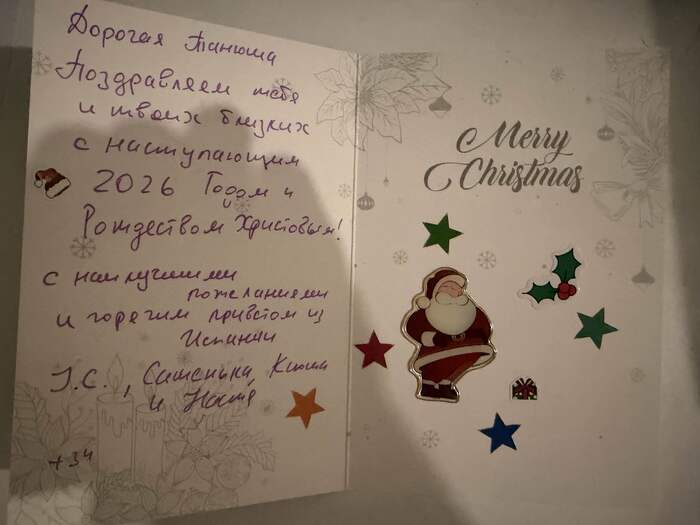 Дорогая Танюша
Поздравляем тебя
и твоих близких
с наступающим
2026 Годом и
Рождеством Христовым!
с наилучшими
пожеланиями
и горячим приветом из
Испании
J.C., Сашенька, Ксюша
и Настя
+34
Merry
Christmas